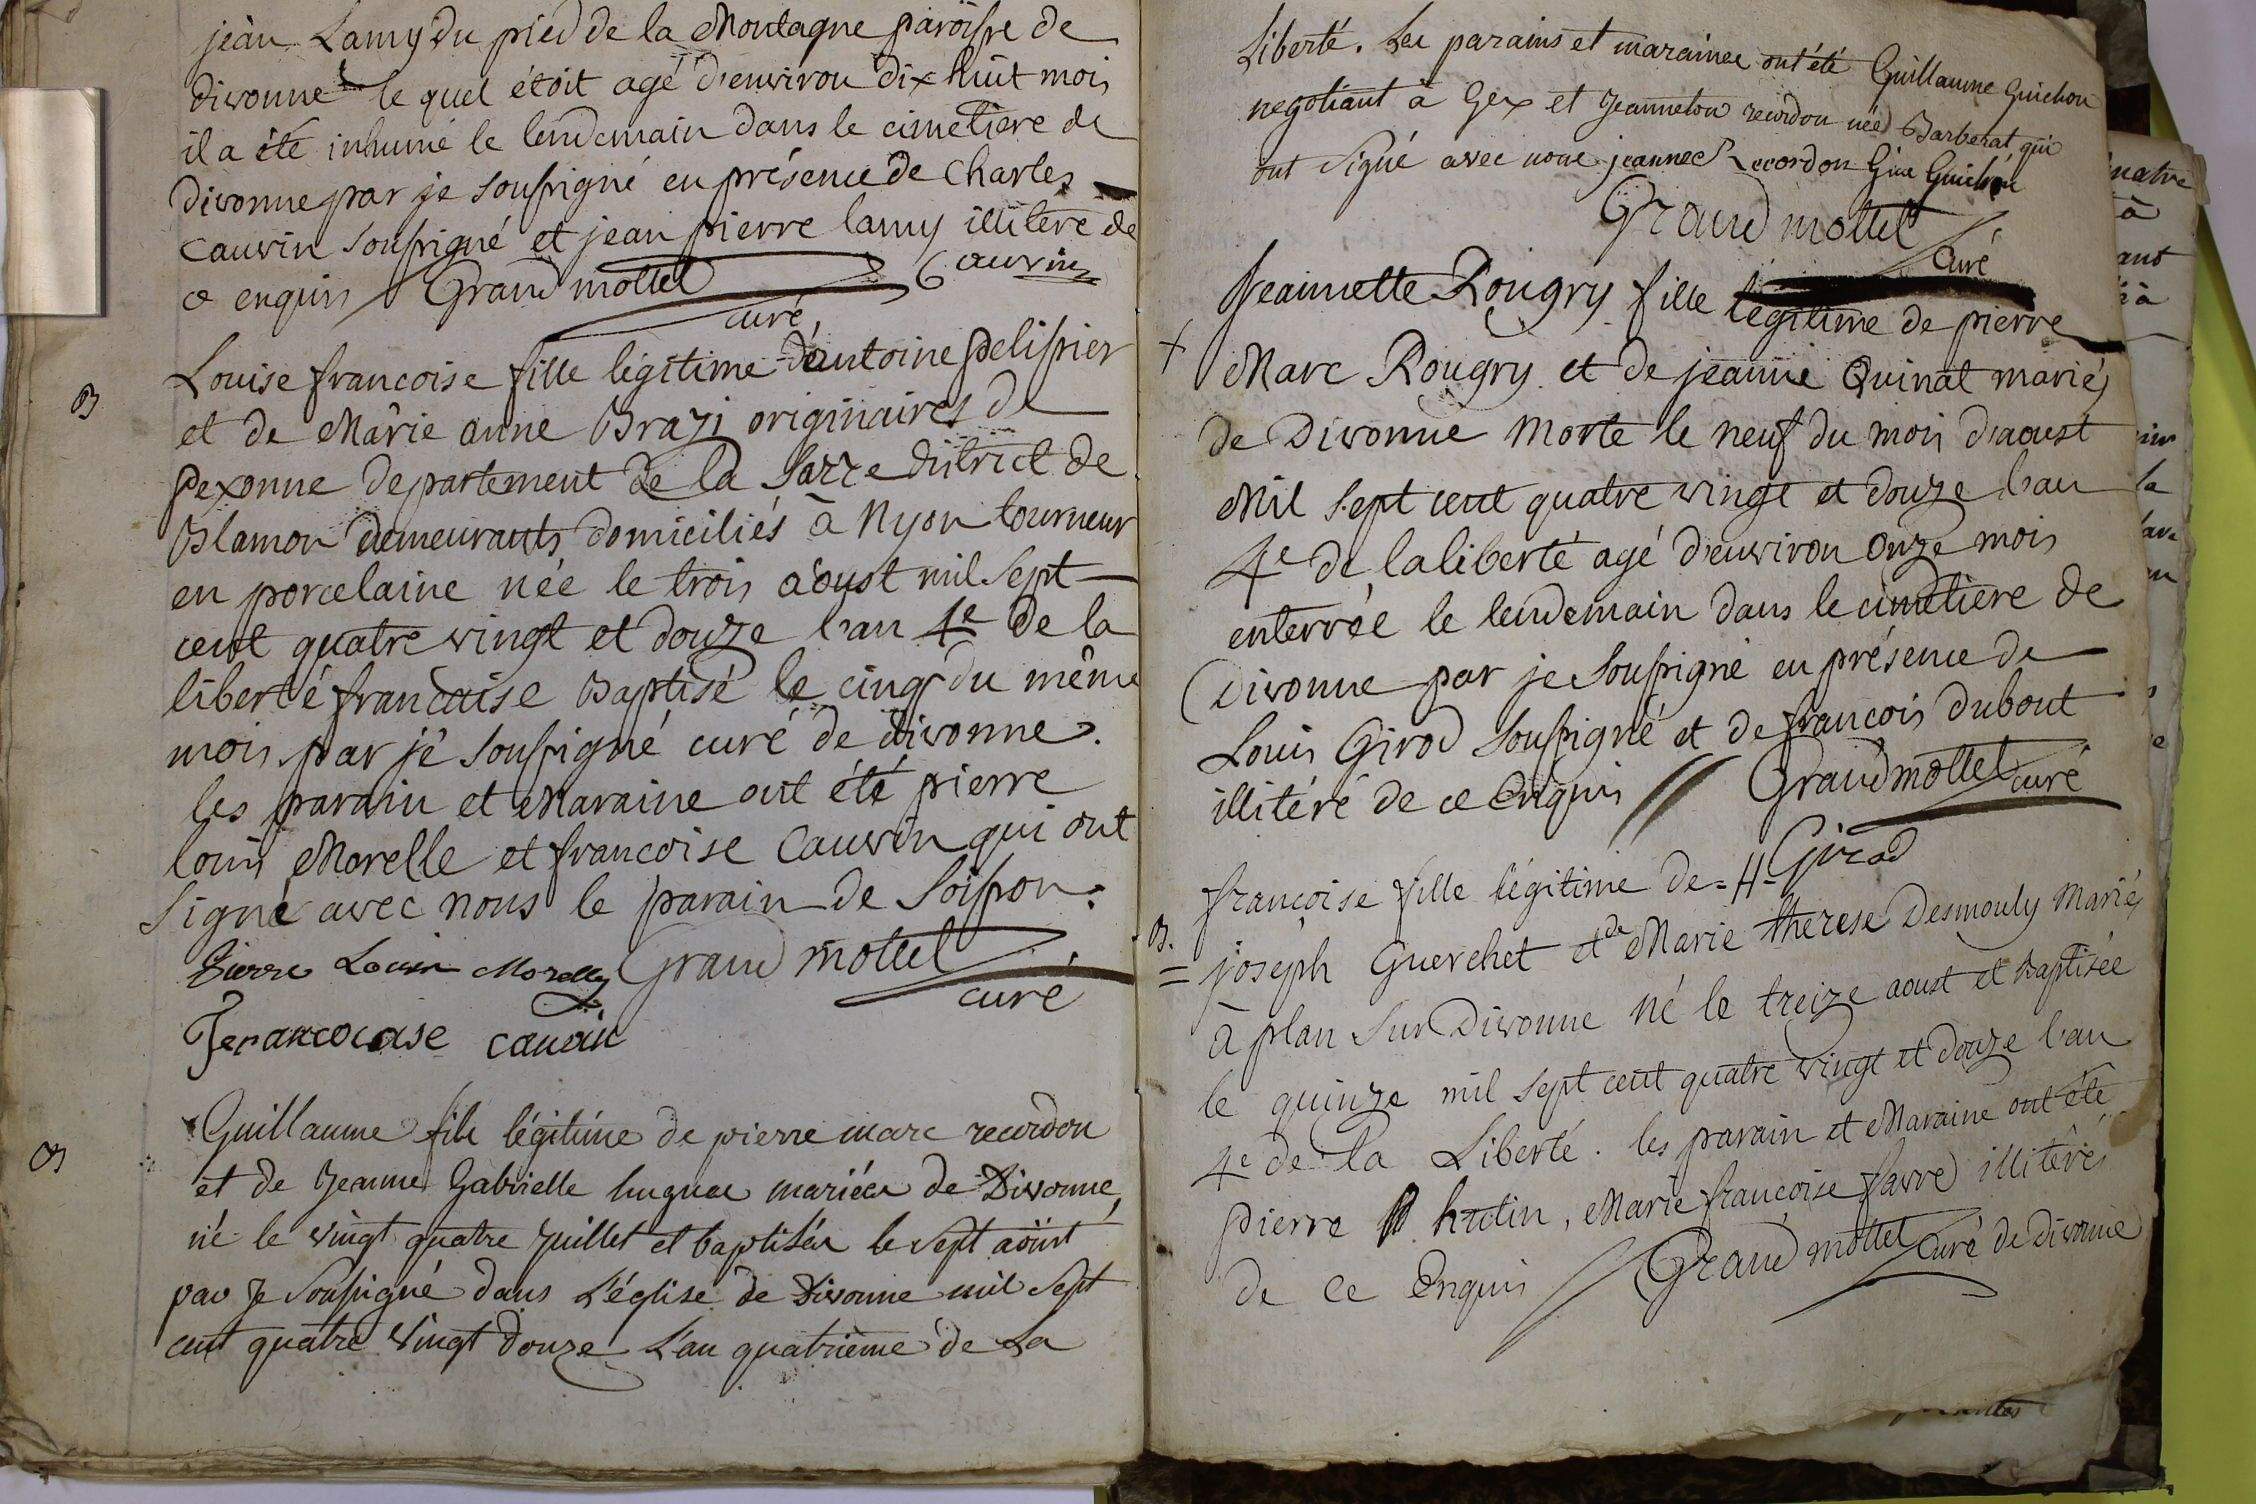 jean Lamy du pied de la Montagne paroisse de
divonne le quel étoit agé d'environ dix huit mois
il a été inhumé le lendemain dans le cimetiere de
Divonne par je soussigné en présence de Charles
Cauvin soussigné et jean pierre lamy illitere de
ce enquis Grand mottet Cauvin
curé
B
Louise francoise fille légitime d'antoine pelissier
et de Marie anne Brazi originaires de
pexonne departement de la Sarre district de
Blamon demeurants domiciliés à Nyon tourneur
en porcelaine née le trois aoust mil sept
cent quatre vingt et douze l'an 4e de la
liberté francaise Baptisé le cinq du même
mois par je soussigné curé de divonne.
les parain et Maraine ont été pierre
louis Morelle et francoise Cauvin qui ont
signé avec nous le parain de Soisson.
Pierre Louis Morelle Grand mottet
curé
Ferancocase cauvin
B
Guillaume fils légitime de pierre marc recordon
et de Jeanne Gabrielle hugues mariés de Divonne,
né le vingt quatre juillet et baptisés le sept aöust
par je soussigné dans L'église de Divonne mil sept
cent quatre vingt douze L'an quatrieme de La
Liberté. Les parains et maraines ont été Guillaume Guichon
negotiant à Gex et Jeanneton recordon née Barberat qui
ont signé avec nous jeanne Recordon Gme Guichon
Grand mottet
Curé
+
Jeannette Rougry fille légitime de pierre
Marc Rougry et de jeanne Quinat mariés
de Divonne morte le neuf du mois d'aoust
Mil sept cent quatre vingt et douze l'an
4e de la liberté agé d'environ onze mois
enterrée le lendemain dans le cimetiere de
Divonne par je soussigné en présence de
Louis Girod soussigné et de francois dubout
illitéré de ce Enquis Grandmottet curé
Girod
francoise fille légitime de =H=
B.
=
joseph Guerchet et de Marie therese Desmouly Mariés
à plan sur Divonne né le treize aoust et Baptisée
le quinze mil sept cent quatre vingt et douze l'an
4e de la Liberté. les parain et Maraine ont été
pierre hutin, Marie françoise favre illitérés
de ce Enquis Grand mottet curé de divonne